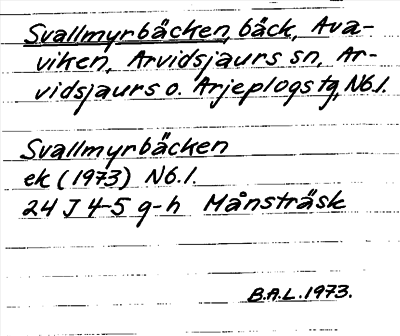 Svallmyrbäcken, bäck, Ava-
viken, Arvidsjaurs sn, Ar-
vidsjaurs o. Arjeplogs tg, Nb.l.
Svallmyrbäcken
ek (1973) Nb.l.
24 J 4-5 g-h Månsträsk
B.A.L. 1973.